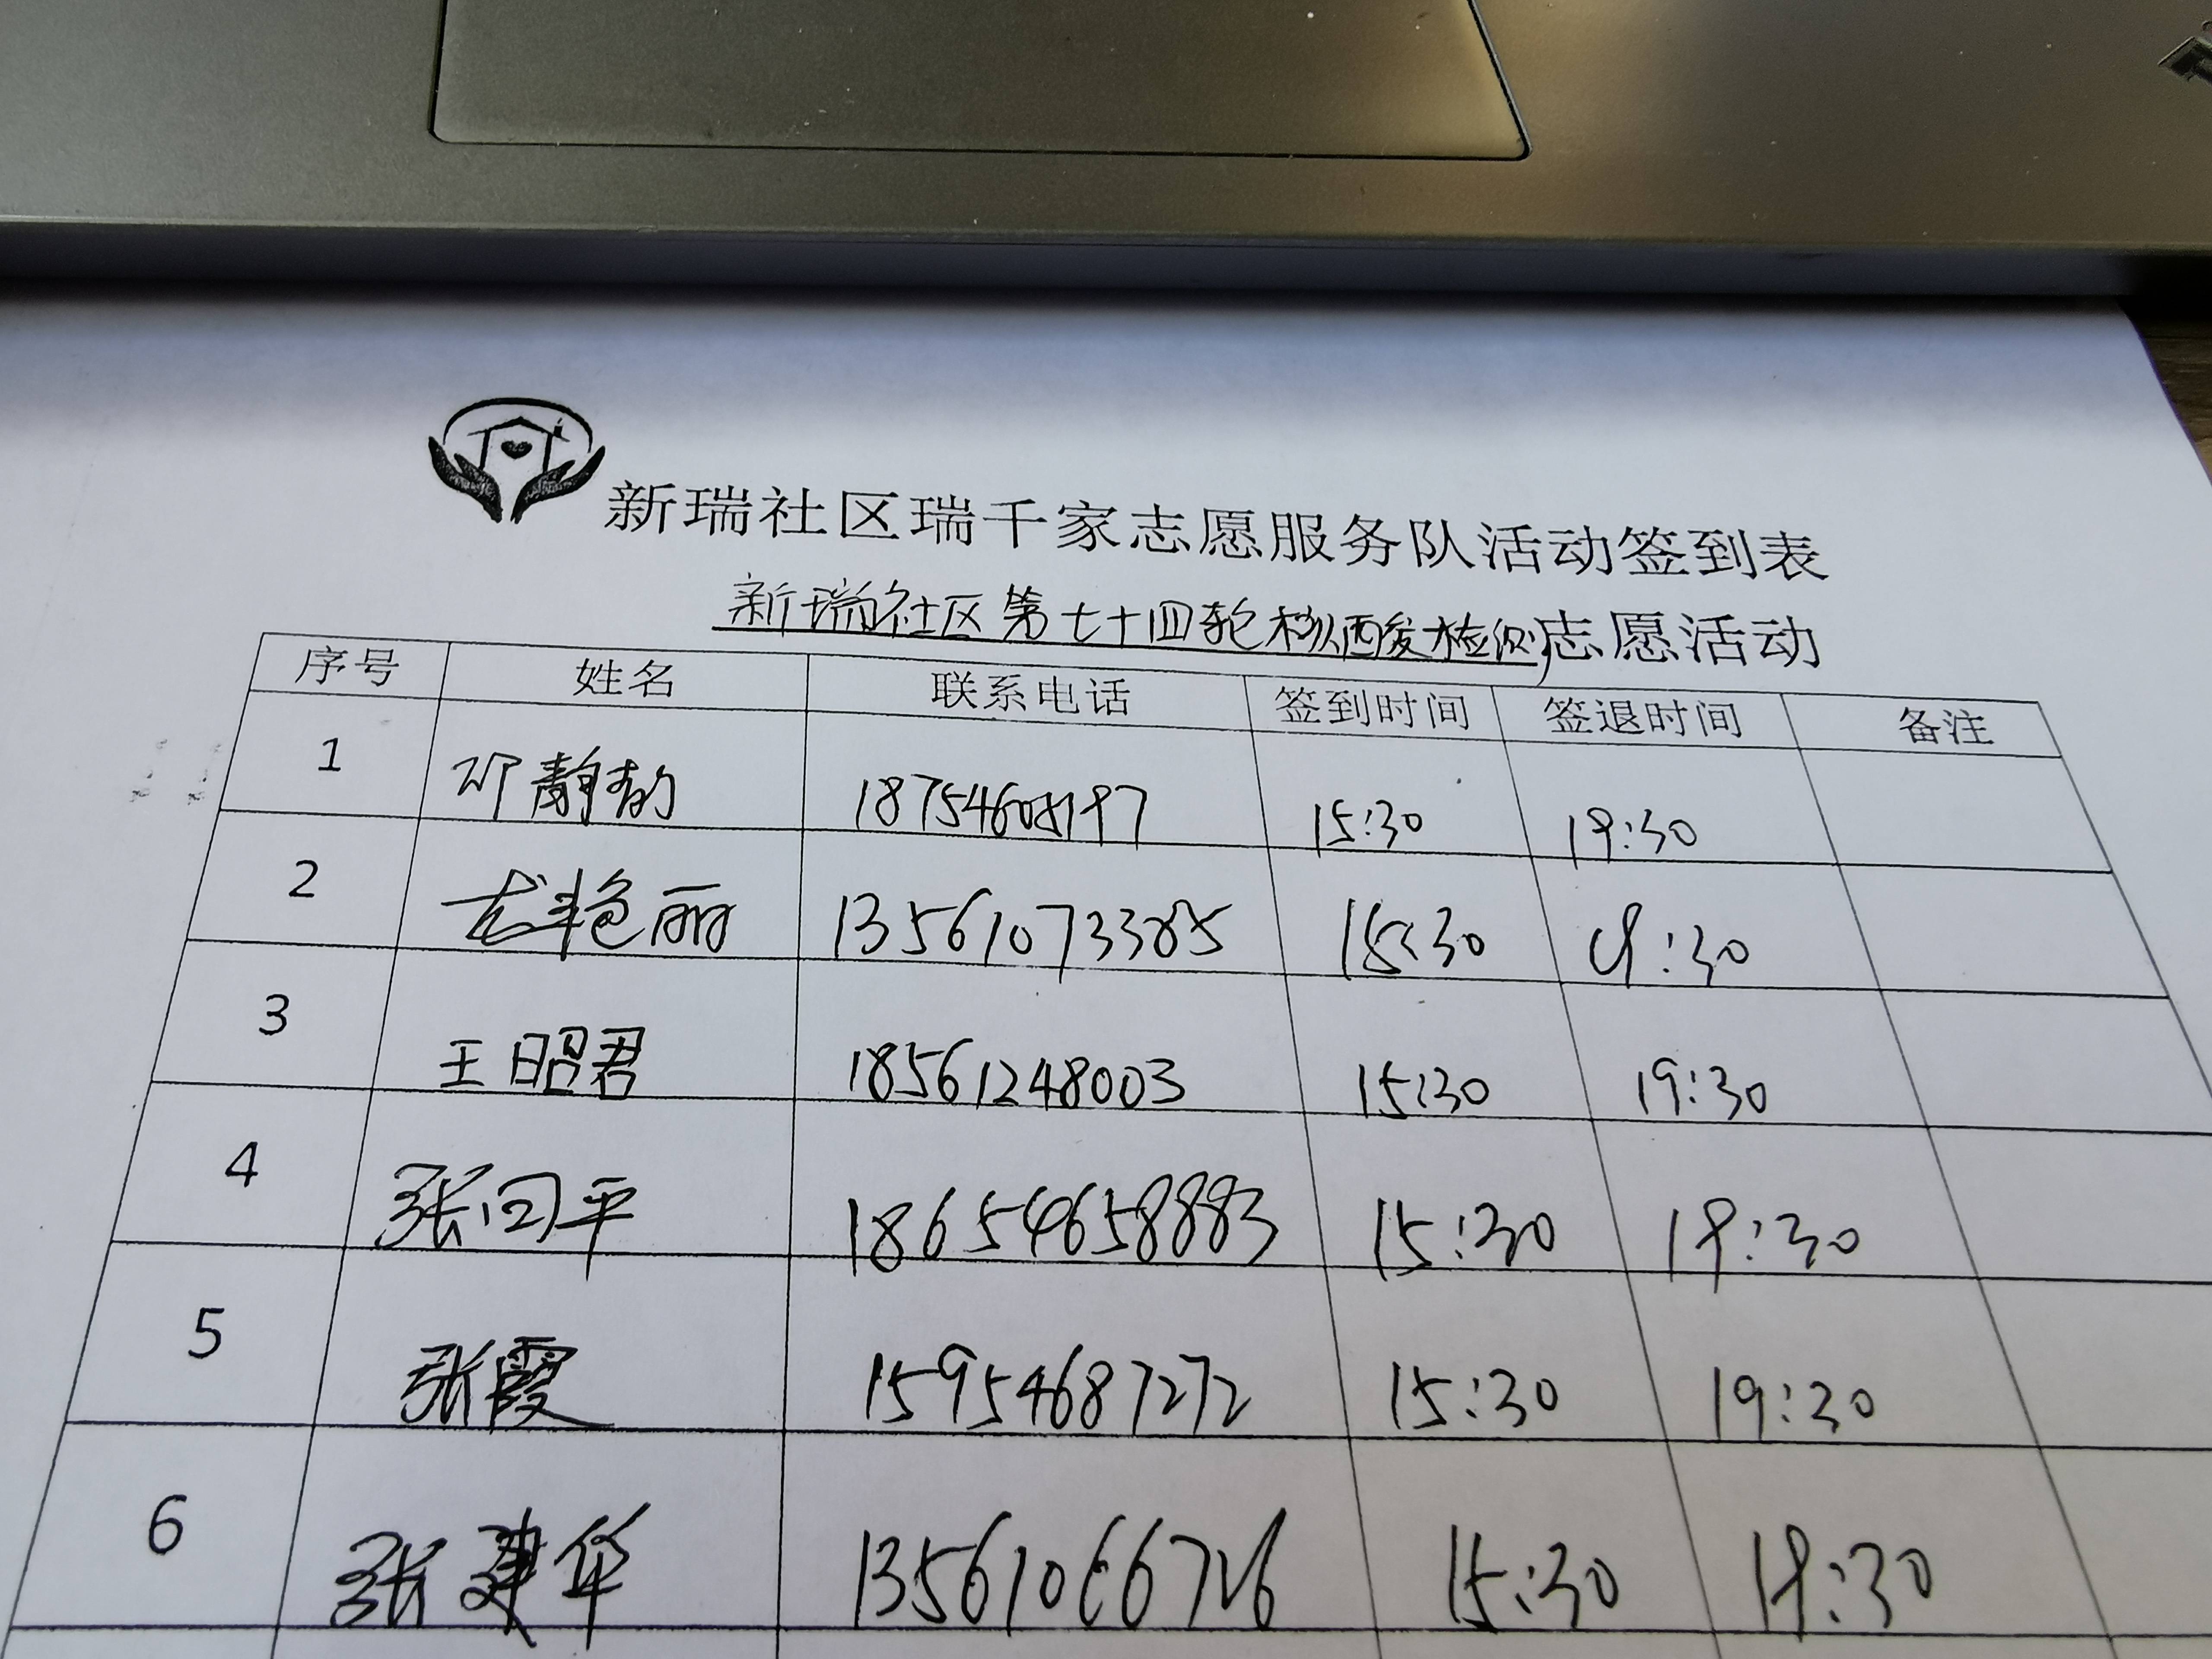 新瑞社区瑞千家志愿服务队活动签到表
新瑞社区第七十四轮核酸检测志愿活动
序号 姓名 联系电话 签到时间 签退时间 备注
1 邓静韵 18754608197 15:30 19:30
2 尤艳丽 13561073385 15:30 19:30
3 王昭君 18561248003 15:30 19:30
4 张回平 18654658883 15:30 19:30
5 张霞 15954687272 15:30 19:30
6 张建华 13561066726 15:30 19:30